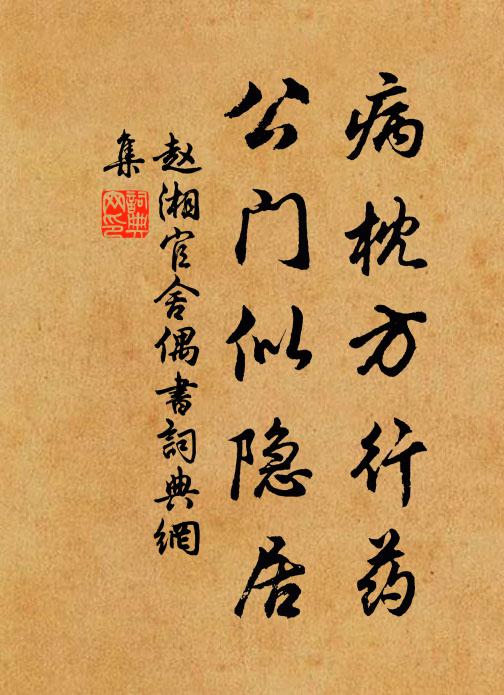 病枕方行药
公门似隐居
赵湘官舍偶書詞典網
集
詞典
网印